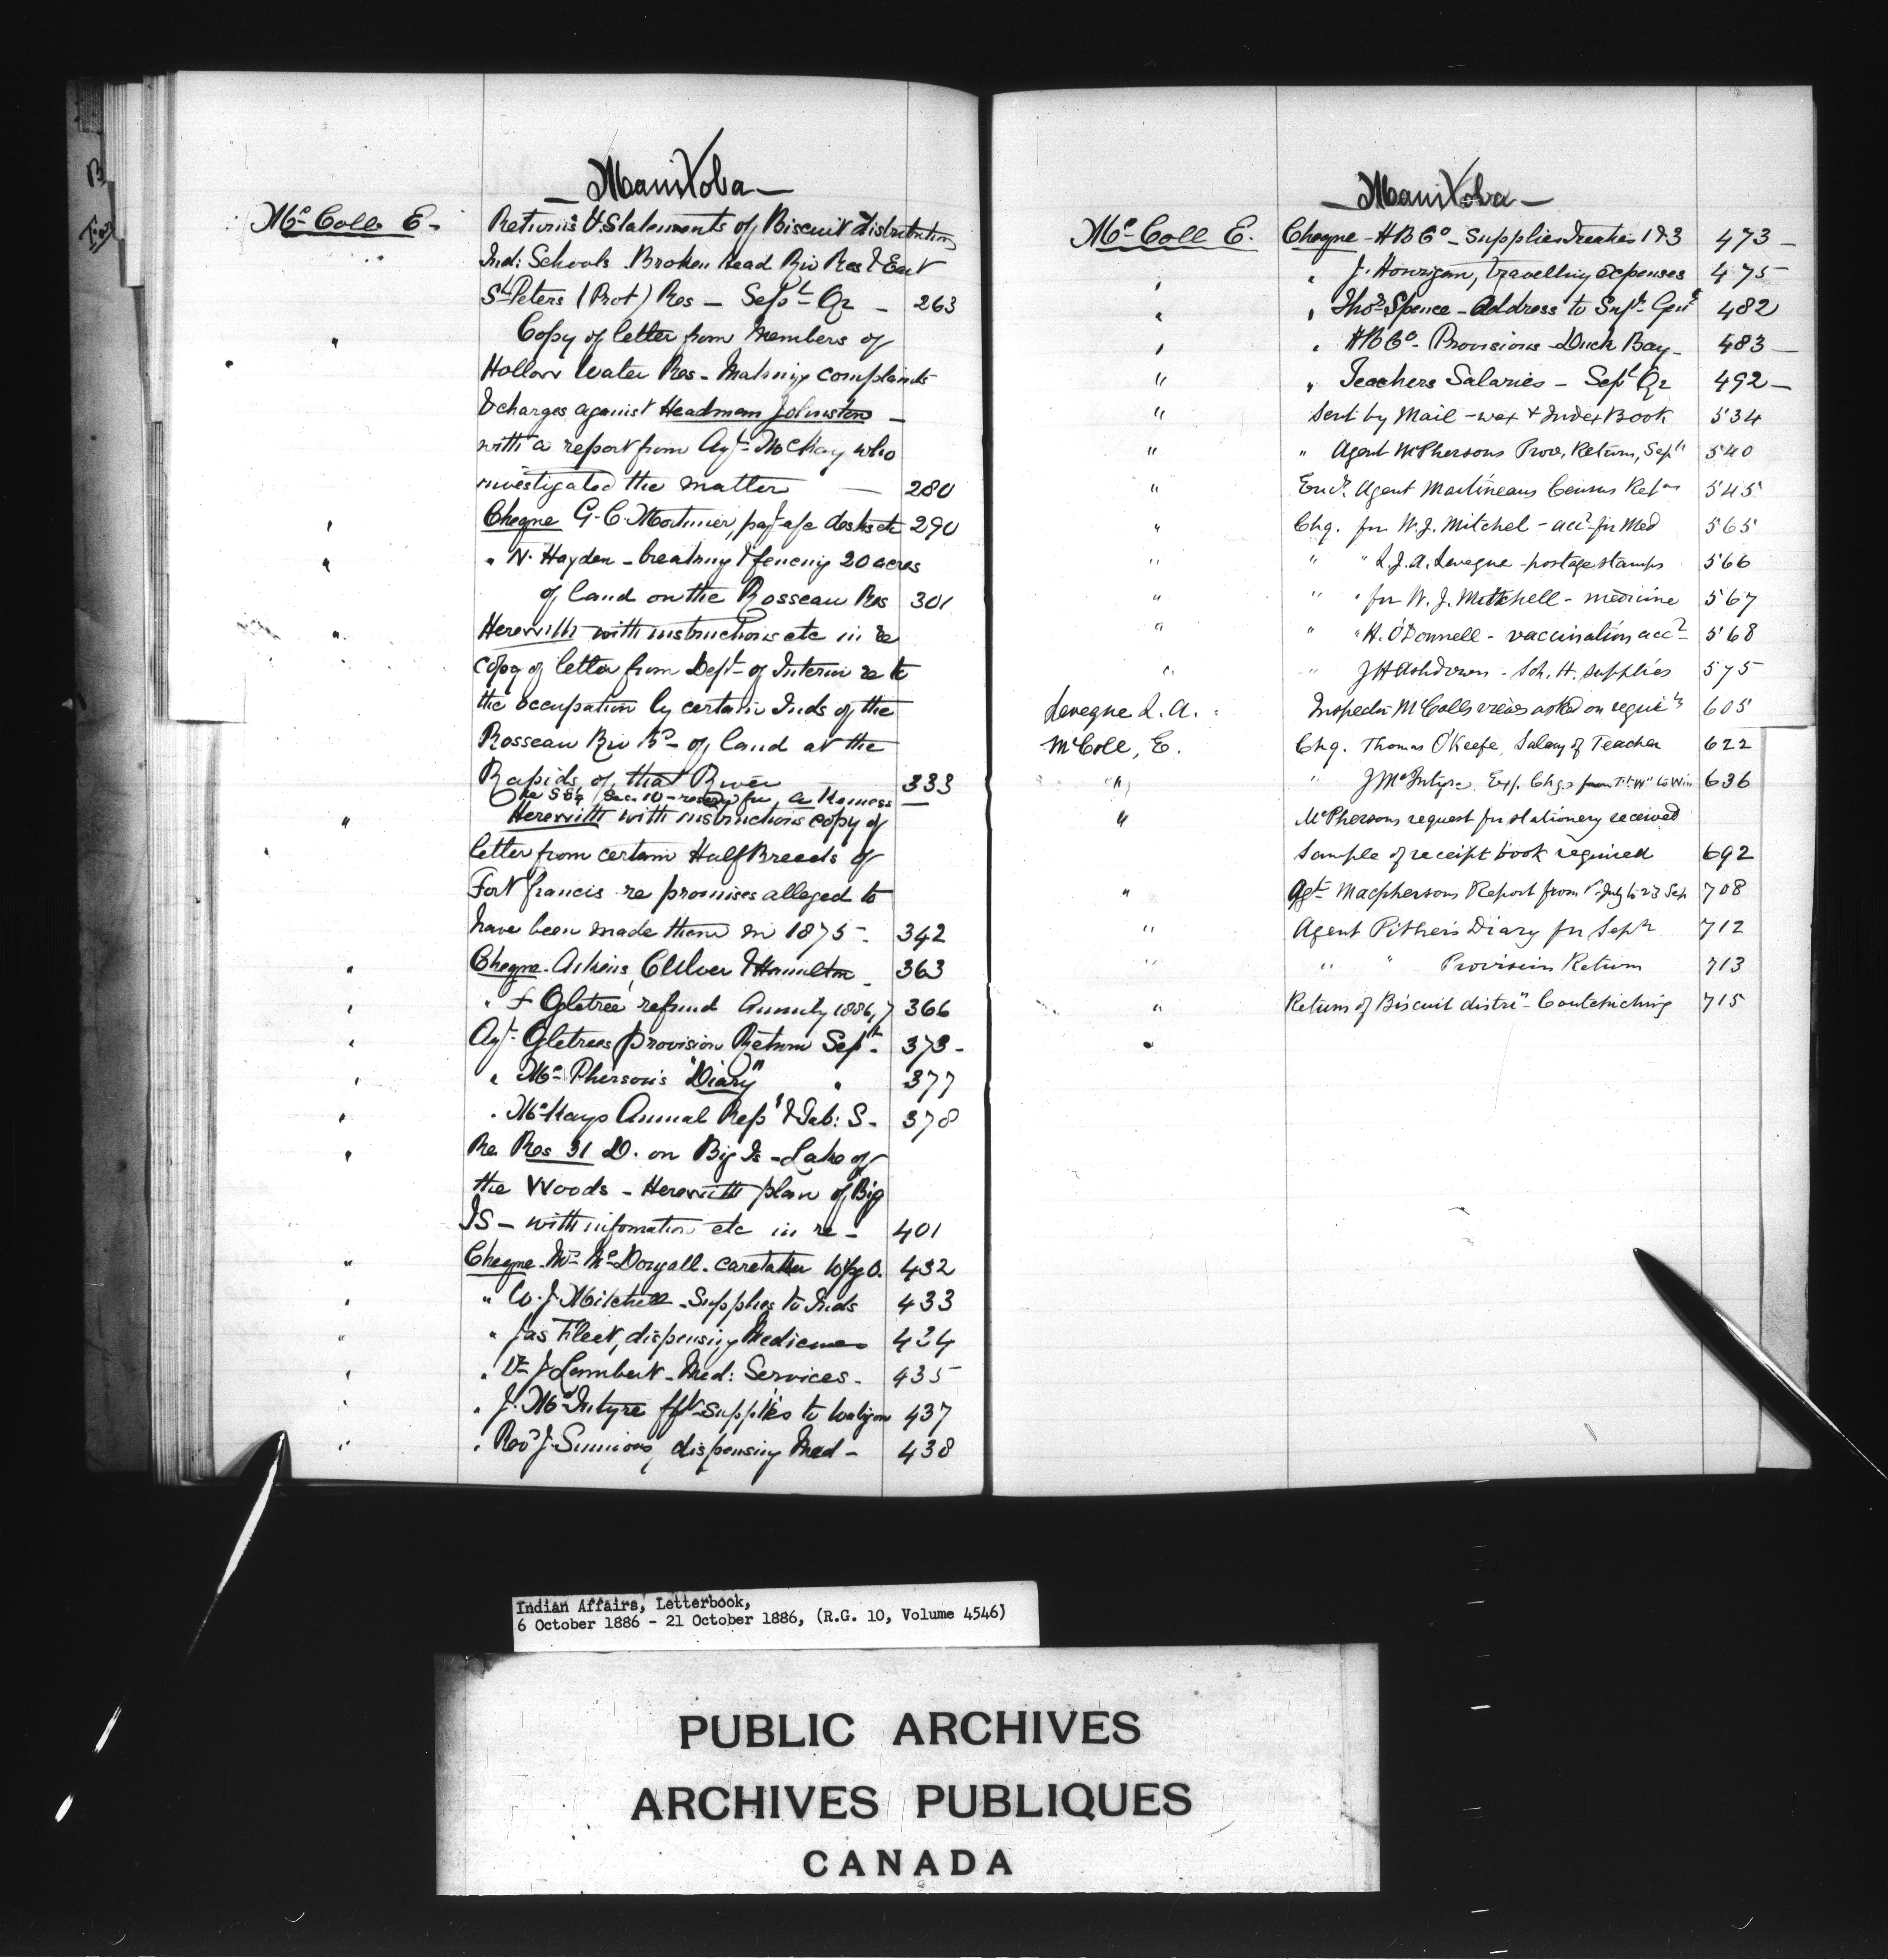 Manitoba
Mc Coll E. Returns & Statements of Biscuit distribution
Ind: Schools Broken Head Riv Res & East
St Peters (Prot) Res - Sept Qr - 263
" Copy of letter from Members of
Hollow Water Res - Making complaints
& charges against Headman Johnston -
with a report from Agt McKay who
investigated the matter - 280
" Cheque G. C. Mortimer, pay a/c desks etc 290
" " N. Hayden - breaking & fencing 20 acres
of land on the Rosseau Res 301
" Herewith with instructions etc in re
copy of letter from Dept of Interior re to
the occupation by certain Inds of the
Rosseau Riv Rs - of land at the
Rapids of that River 333
" Herewith with instructions copy of
letter from certain Half Breeds of
Fort Francis re promises alleged to
have been made them in 1875 - 342
" Cheque - Aikins, Culver & Hamilton - 363
" " F Ogletree refund Annuity 1886,7 366
" Agt Ogletrees provision Return Sept - 373 -
" " Mc Pherson's "Diary" " 377
" " McKays Annual Rept & Tab: S - 378
" Re Res 31 D. on Big Is - Lake of
the Woods - Herewith plan of Big
IS - with infomation etc in re - 401
" Cheque Mrs McDougall - caretaker Wpg O. 432
" " W. J. Mitchell - Supplies to Inds 433
" " Jas Fleet, dispensing Medicines 434
" " Dr J Lambert - Med: Services - 435
" " J. McIntyre frt supplies to 437
" " Revd J. , dispensing Med - 438
Manitoba
Mc Coll E. Cheque - HBCo - Supplies Treaties 1 & 3 473 -
" " J. Hourigan, travelling expenses 475
" " Thos Spence - Address to Supt Genl 482
" " HBCo - Provisions Duck Bay - 483 -
" " Teachers Salaries - Sept Qr 492 -
" Sent by Mail - wax & Index Book 534
" " Agent McPhersons Prov. Return, Sept 540
" Encl. Agent Martineaus Census Retn 545
" Chq. for W. J. Mitchel - acct for Med 565
" " " L. J. A. Leveque - postage stamps 566
" " " for W. J. Mitchell - medicine 567
" " " H. O'Donnell - vaccination acct - 568
" " J H Ashdown - Sch. H. supplies 575
Leveque L. A. Inspector McColls views asked on 605
McColl, E. Chq. Thomas O'Keefe, Salary of Teacher 622
" " J McIntyre Exp. Chgs from Ft "W" to Win 636
" McPhersons request for stationery received
Sample of receipt book required 692
" Agt Macphersons Report from 1st July to 23 Sep 708
" Agent Pither's Diary for Septr 712
" " " Provision Return 713
" Return of Biscuit distrin - Coutchiching 715
Indian Affairs, Letterbook,
6 October 1886 - 21 October 1886, (R.G. 10, Volume 4546)
PUBLIC ARCHIVES
ARCHIVES PUBLIQUES
CANADA